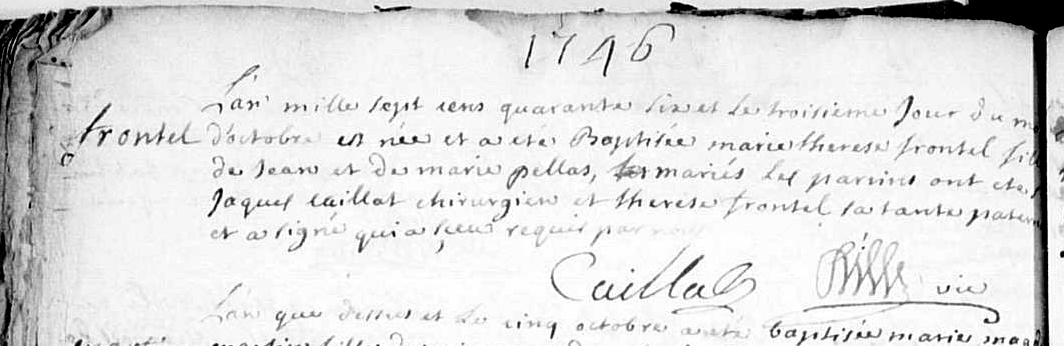 1746
L'an mille sept cens quarante six et le troisieme Jour du mo
frontel d'octobre est née et a eté Baptisée marie therese frontel fil
de Jean et de marie pellas, mariés Les parrins ont eté
Jaques Caillat chirurgien et therese frontel sa tante patern
et a signé qui a sçeu requis par nous
Caillat Rille vic
L'an que dessus et Le cinq octobre a eté baptisée marie mag